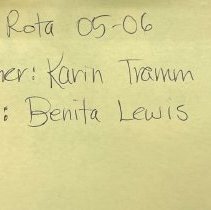 Rota 05-06
ner: Karin Tramm
: Benita Lewis